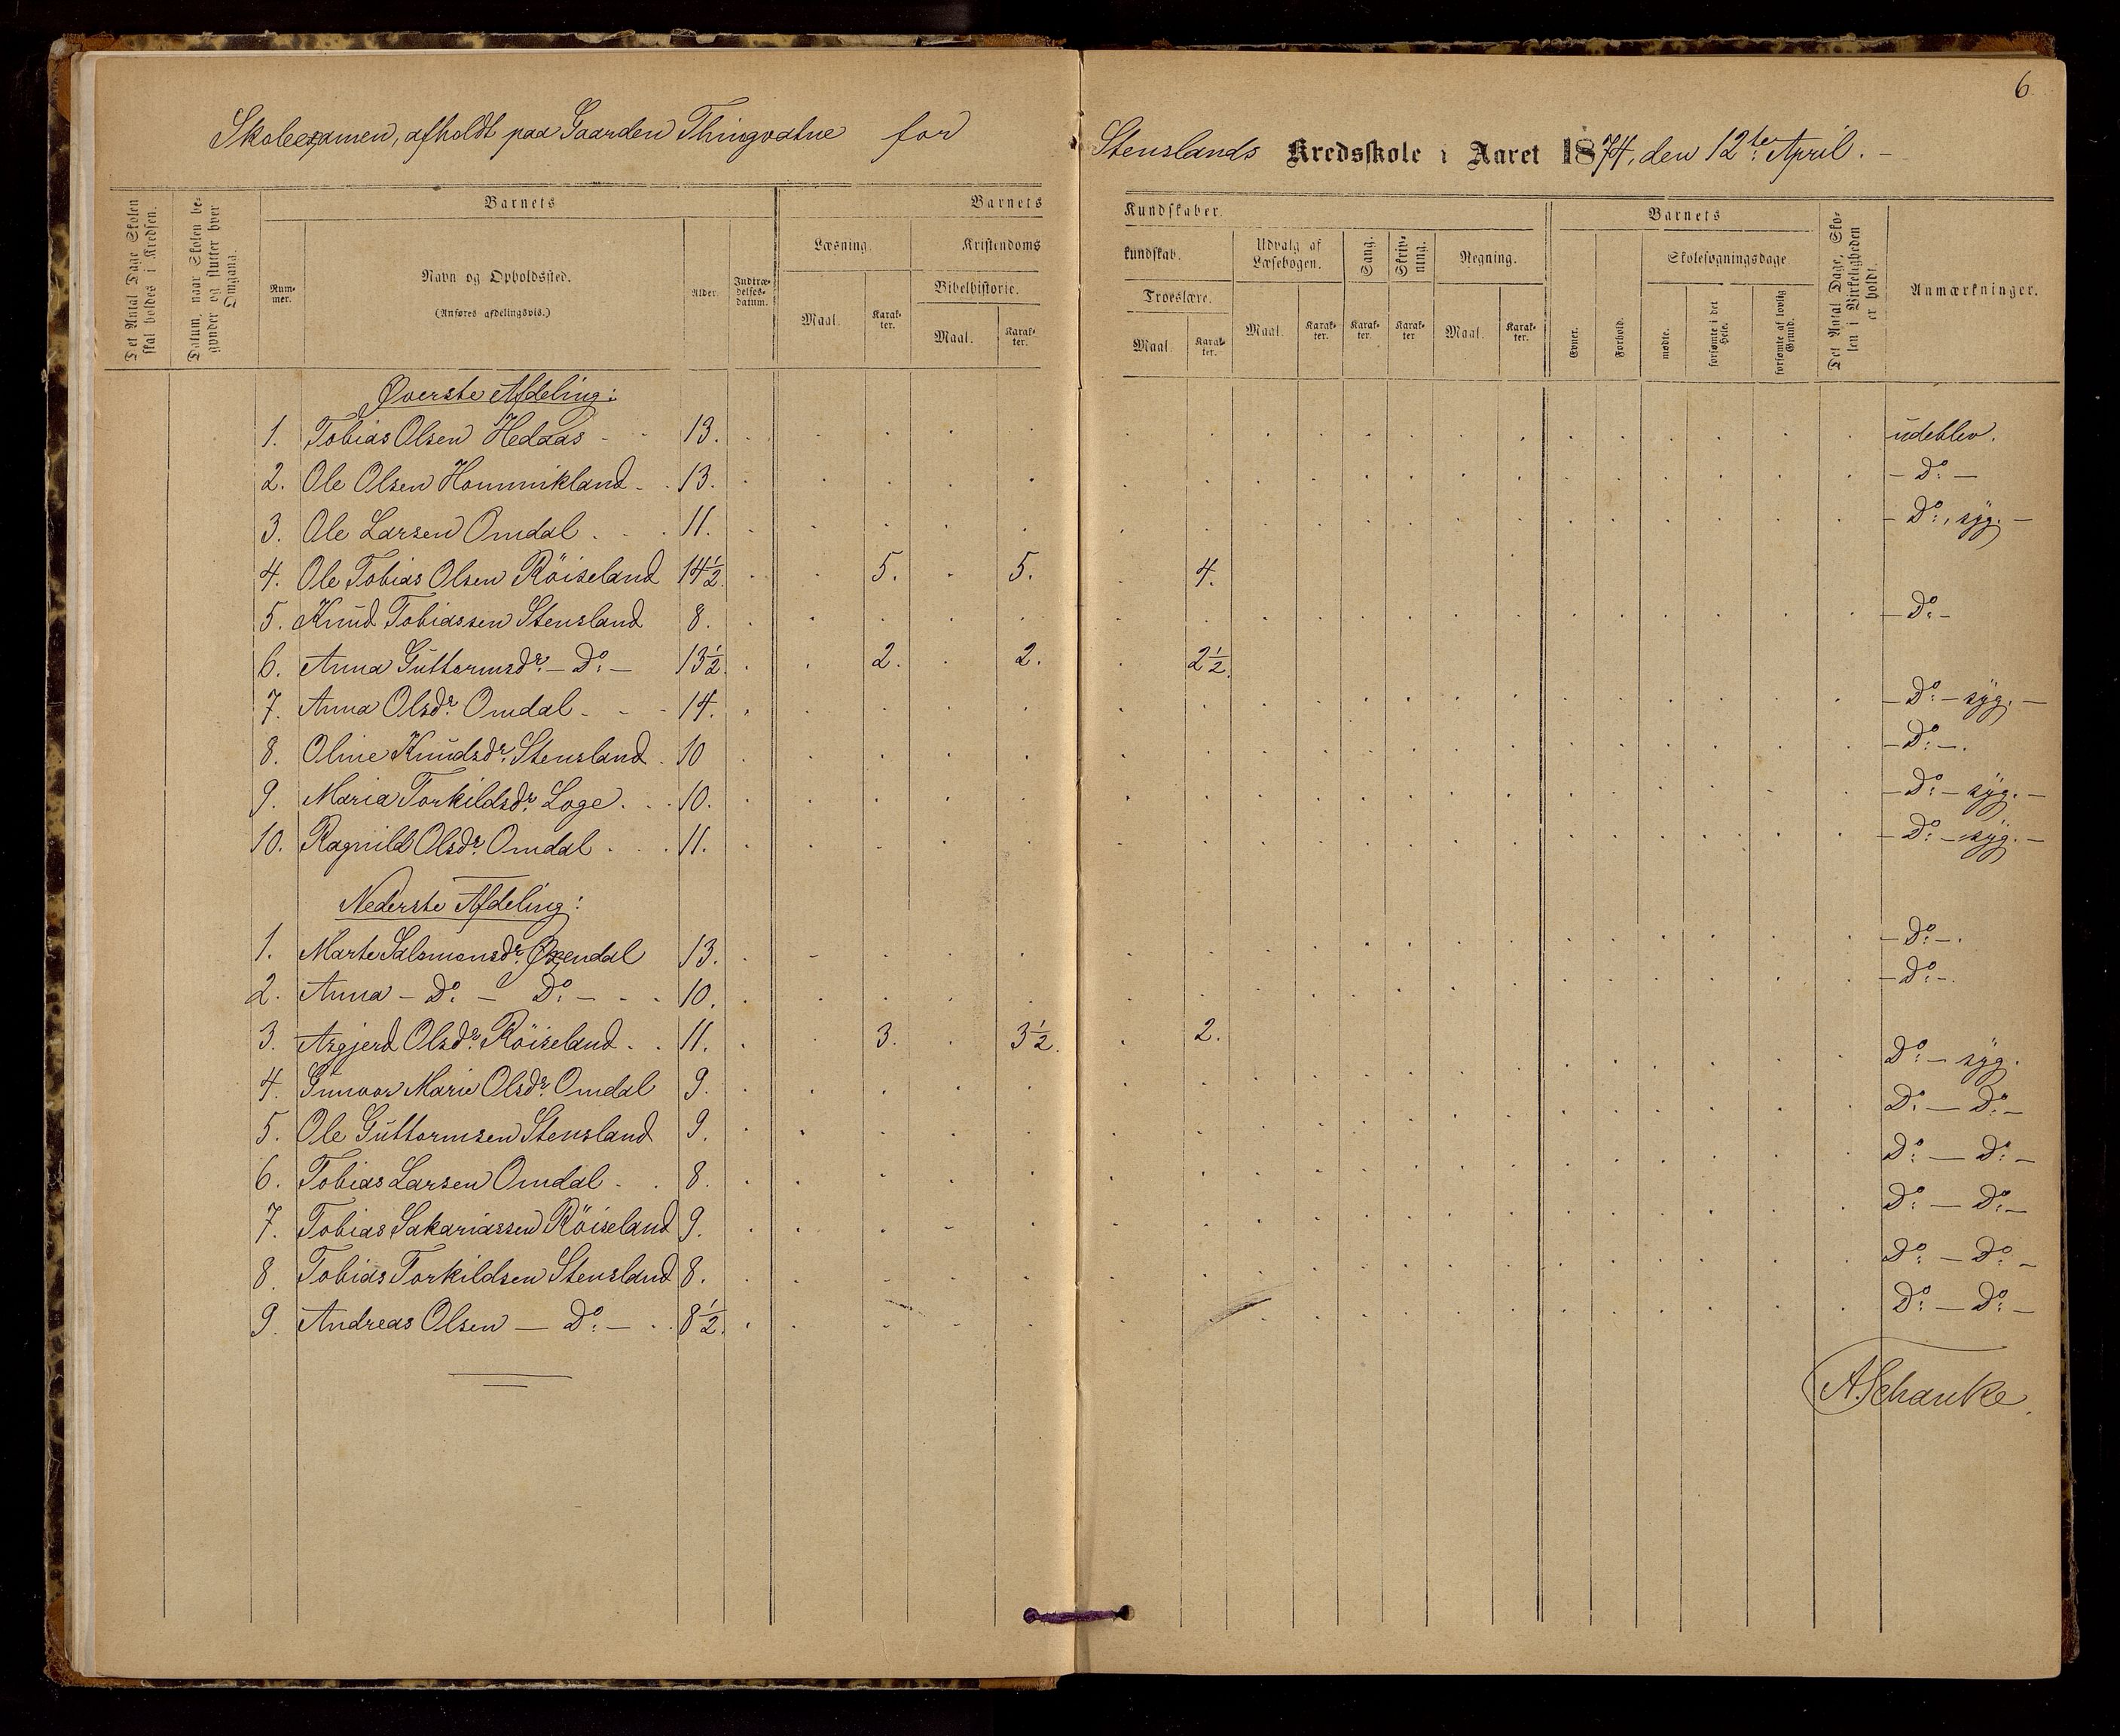 6
Skoleexamen, afholdt paa Gaarden Thingvatne for Stenslands Kredsskole i Aaret 1874, den 12te April. –
Det Antal Dage Skolen skal holdes i Kredsen.
Datum, naar Skolen begynder og slutter hver Omgang.
Barnets
Nummer.
Navn og Opholdssted.
(Anføres afdelingsvis.)
Alder.
Indtrædelses-datum.
Barnets Kundskaber.
Læsning.
Kristendomskundskab.
Bibelhistorie.
Troeslære.
Udvalg af Læsebogen.
Sang.
Skrivning.
Regning.
Maal. Karakter. Maal. Karakter. Maal. Karakter. Maal. Karakter. Karakter. Karakter Maal. Karakter.
Barnets
Evner.
Forhold.
Skolesøgningsdage
mødte.
forsømte i det Hele.
forsømte af lovlig Grund.
Det Antal Dage, Skolen i Virkeligheden er holdt.
Anmærkninger.
Øverste Afdeling:
1. Tobias Olsen Hedaas - - 13. udeblev.
2. Ole Olsen Hommikland - . 13. - Do: -
3. Ole Larsen Omdal . . . 11. - Do:, syg. -
4. Ole Tobias Olsen Röiseland 14½. 5. 5. 4.
5. Knud Tobiassen Stensland 8. - Do: -
6. Anna Guttormsdr: - Do: - 13½. 2. 2. 2½.
7. Anna Olsdr: Omdal - - - 14. - Do: - syg. -
8. Oline Knudsdr: Stensland . 10 - Do: -.
9. Maria Torkildsdr: Loge . . . 10. - Do: - syg. -
10. Ragnild Olsdr: Omdal . . . 11. - Do: - syg. -
Nederste Afdeling:
1. Marte Salomonsdr: Øxendal 13. - Do: -.
2. Anna - Do: - Do: - - . 10. - Do: -.
3. Asgjerd Olsdr: Röiseland . . 11. 3. 3½. 2.
4. Gunvor Marie Olsdr: Omdal 9. Do: - syg.
5. Ole Guttormsen Stensland 9. Do: - Do: -
6. Tobias Larsen Omdal - . 8. Do: - Do: -
7. Tobias Sakariassen Röiseland 9. Do: - Do: -
8. Tobias Torkildsen Stensland 8. Do: - Do: -
9. Andreas Olsen - Do: - . . 8½. Do: - Do: -
A. Schanke.